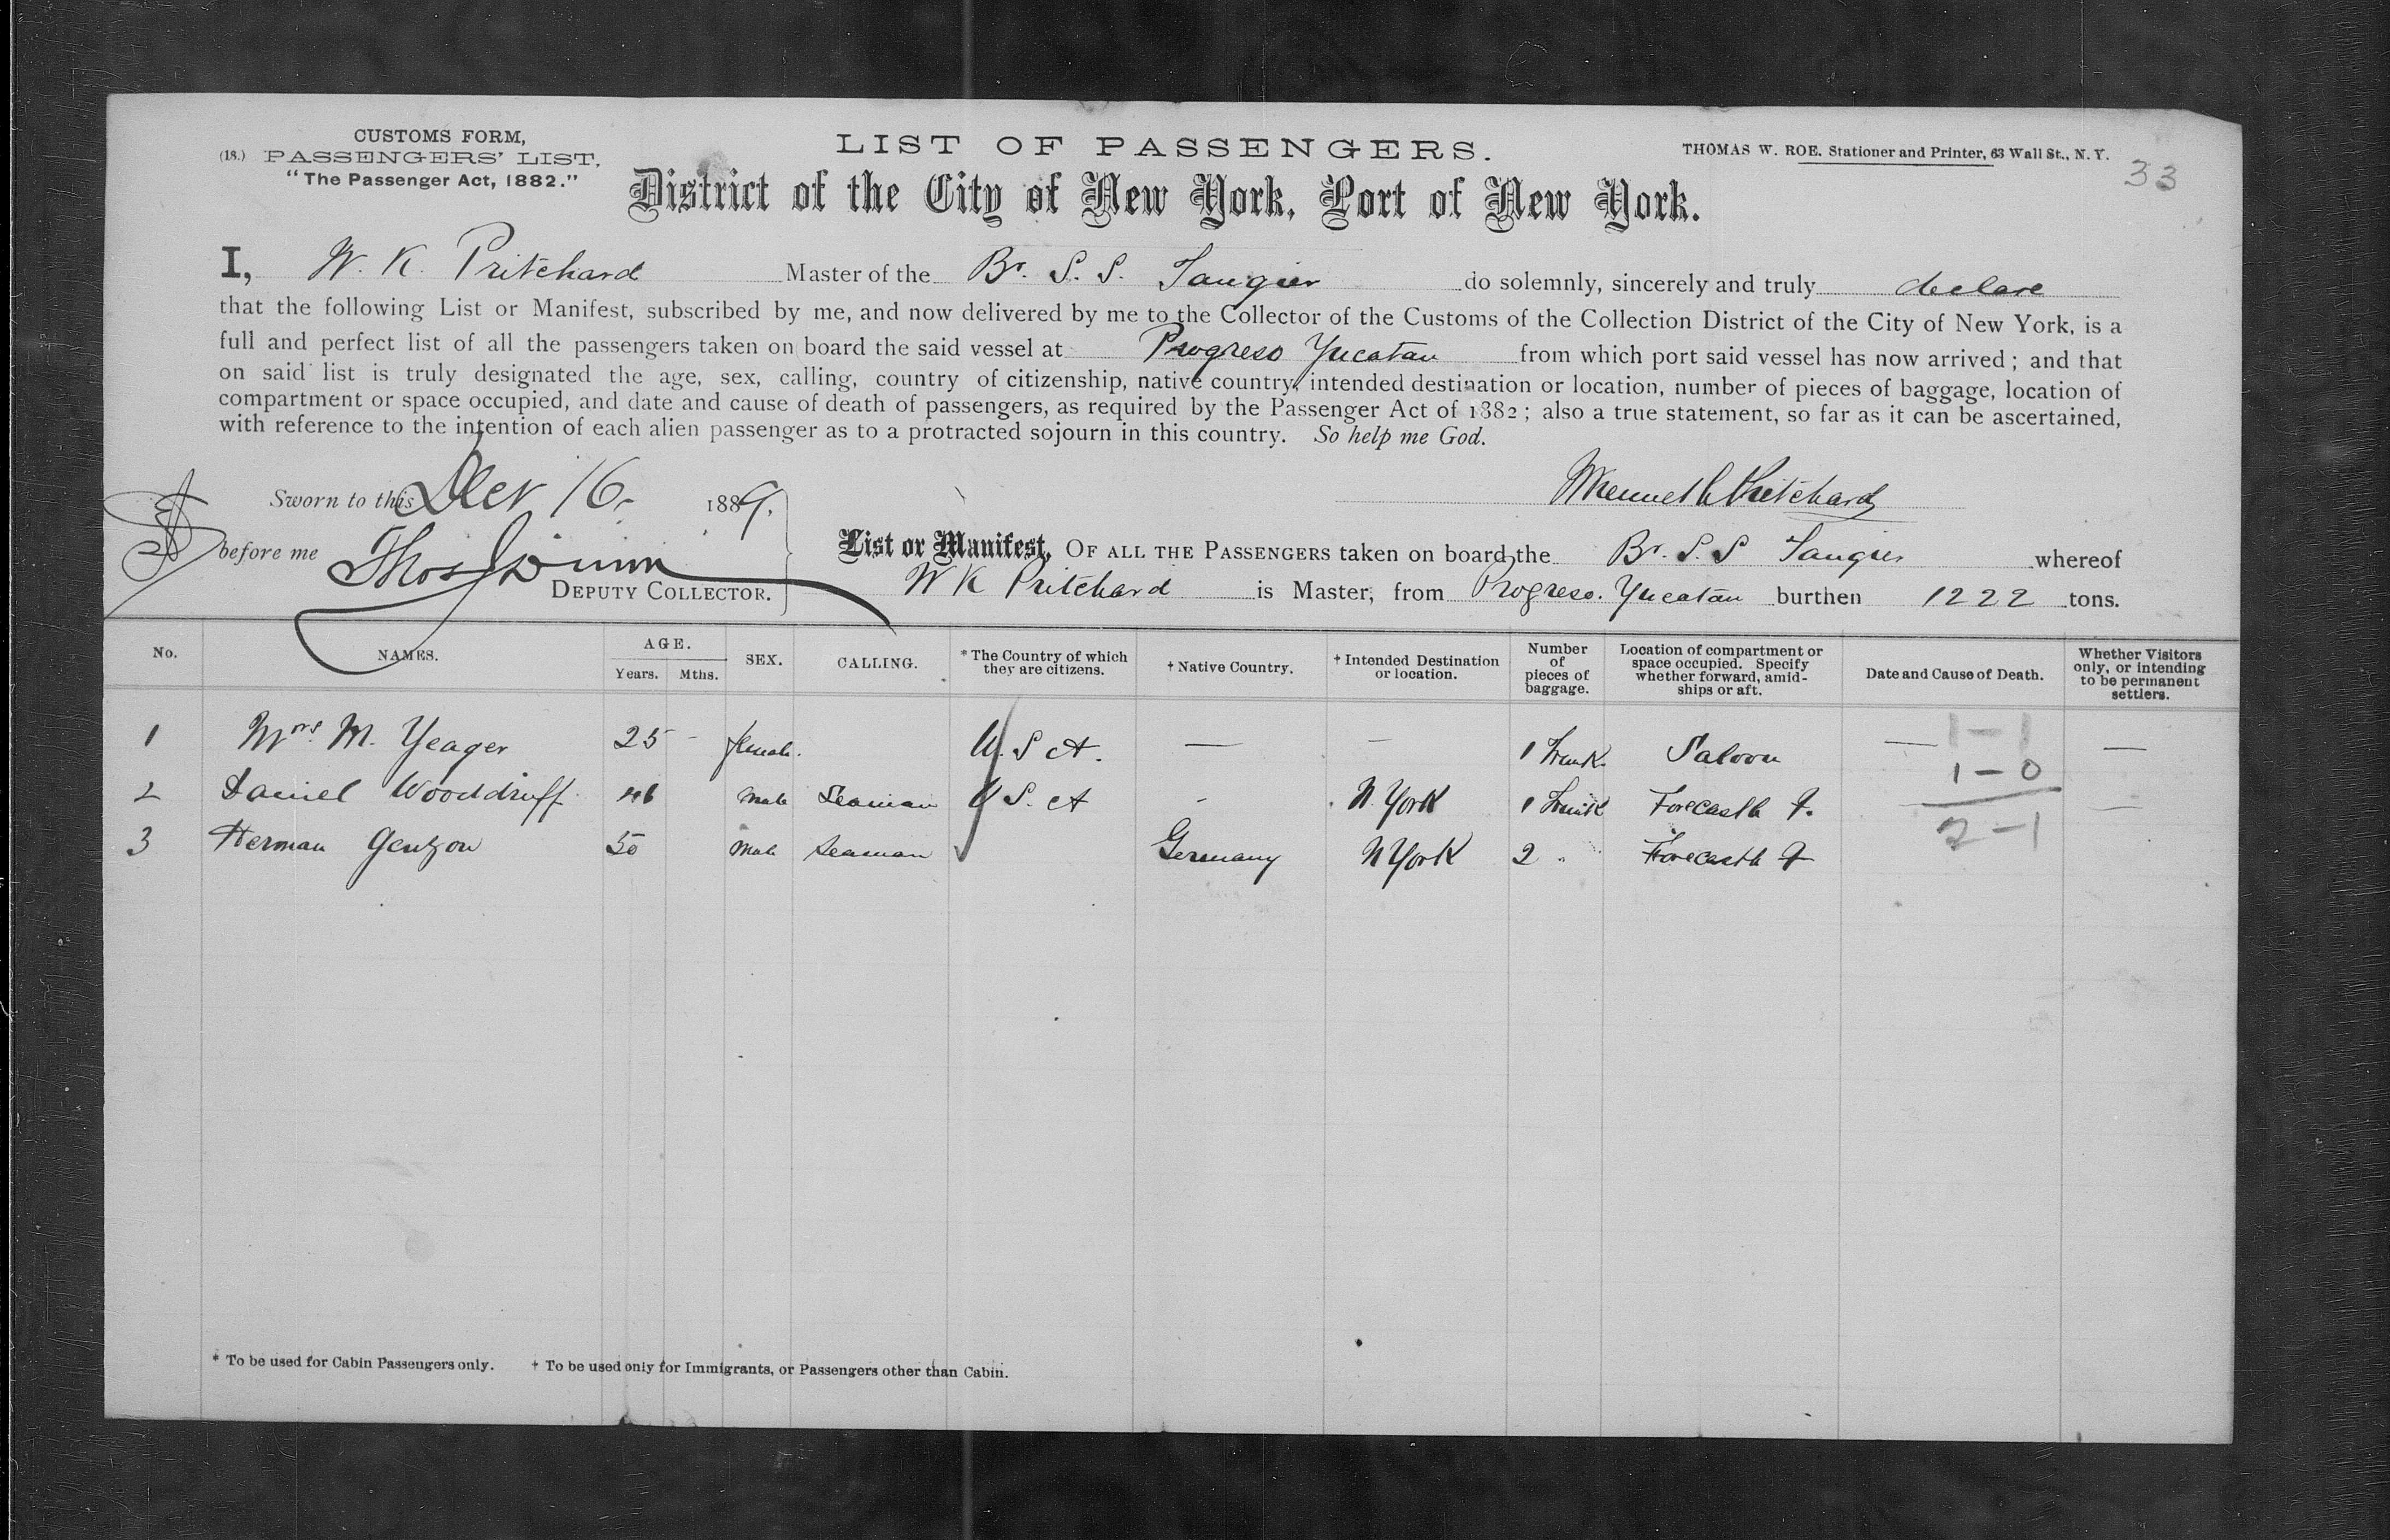 CUSTOMS FORM,
(18.) PASSENGERS' LIST,
"The Passenger Act, 1882."
LIST OF PASSENGERS.
THOMAS W. ROE. Stationer and Printer, 63 Wall St., N. Y.
33
District of the City of New York, Port of New York.
I, W. K. Pritchard Master of the Br. S. S. Tangier do solemnly, sincerely and truly declare
that the following List or Manifest, subscribed by me, and now delivered by me to the Collector of the Customs of the Collection District of the City of New York, is a
full and perfect list of all the passengers taken on board the said vessel at Progreso Yucatan from which port said vessel has now arrived; and that
on said list is truly designated the age, sex, calling, country of citizenship, native country, intended destination or location, number of pieces of baggage, location of
compartment or space occupied, and date and cause of death of passengers, as required by the Passenger Act of 1882; also a true statement, so far as it can be ascertained,
with reference to the intention of each alien passenger as to a protracted sojourn in this country. So help me God.
Sworn to this Dec 16 1889,
Pritchard
before me Thos Dunn
DEPUTY COLLECTOR.
List or Manifest, OF ALL THE PASSENGERS taken on board the Br. S. S Tangier whereof
W K Pritchard is Master, from Progreso. Yucatan burthen 1222 tons.
No. NAMES. AGE. Years. Mths. SEX. CALLING. * The Country of which they are citizens. † Native Country. † Intended Destination or location. Number of pieces of baggage. Location of compartment or space occupied. Specify whether forward, amidships or aft. Date and Cause of Death. Whether Visitors only, or intending to be permanent settlers.
1 Mrs. M. Yeager 25 - female. U. S A. — — 1 Trunk. Saloon — 1-1 —
2 Daniel Wooddruff 46 Male Seaman U S. A - N. York 1 Trunk Forecastle F. 1-0 —
3 Herman 50 Male Seaman Germany N York 2 " Forecastle F 2-1
* To be used for Cabin Passengers only. † To be used only for Immigrants, or Passengers other than Cabin.